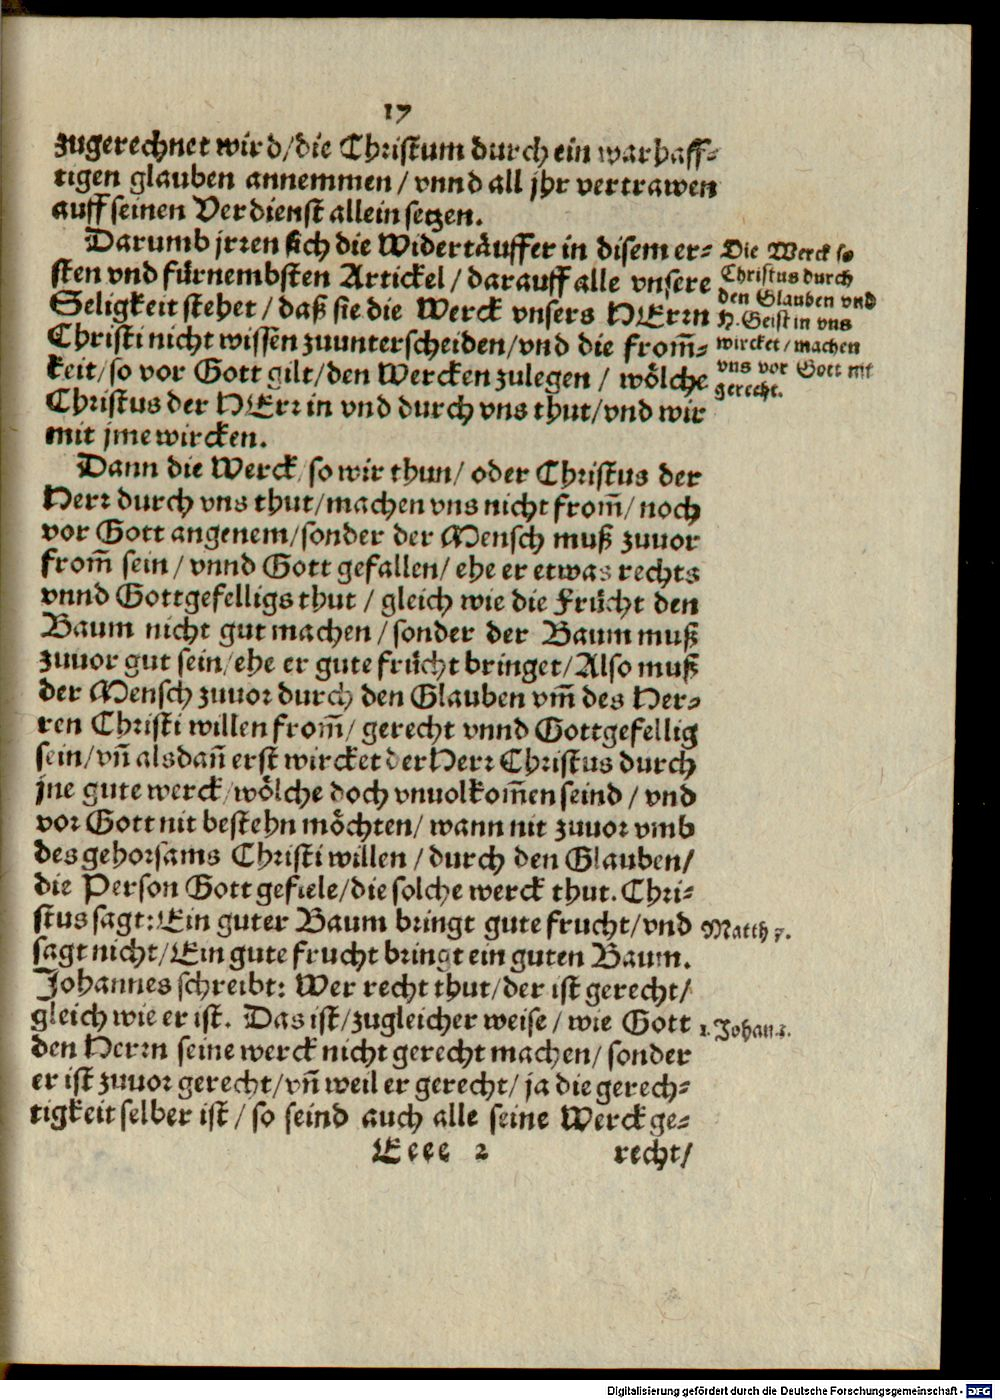 17
zugerechnet wird/die Christum durch ein warhaff-
tigen glauben annemmen/ vnnd all jhr vertrawen
auff seinen Verdienst allein setzen.
Darumb jrren sich die Widertäuffer in disem er-
sten vnd fürnembsten Artickel/ darauff alle vnsere
Seligkeit stehet/ daß sie die Werck vnsers HErrn
Christi nicht wissen zuunterscheiden/vnd die from̃-
keit/so vor Gott gilt/den Wercken zulegen/ wölche
Christus der HErr in vnd durch vns thut/vnd wir
mit jme wircken.
Die Werck so
Christus durch
den Glauben vnd
H. Geist in vns
wircket/machen
vns vor Gott nit
gerecht.
Dann die Werck/so wir thun/ oder Christus der
Herr durch vns thut/machen vns nicht from̃/ noch
vor Gott angenem/sonder der Mensch muß zuuor
from̃ sein/ vnnd Gott gefallen/ ehe er etwas rechts
vnnd Gottgefelligs thut/ gleich wie die Frücht den
Baum nicht gut machen/sonder der Baum muß
zuuor gut sein/ehe er gute frücht bringet/Also muß
der Mensch zuuor durch den Glauben vm̃ des Her-
ren Christi willen from̃/ gerecht vnnd Gottgefellig
sein/vñ alsdañ erst wircket der Herr Christus durch
jne gute werck/wölche doch vnuolkom̃en seind/ vnd
vor Gott nit bestehn möchten/ wann nit zuuor vmb
des gehorsams Christi willen/durch den Glauben/
die Person Gott gefiele/die solche werck thut. Chri-
stus sagt: Ein guter Baum bringt gute frucht/vnd
Matth 7.
sagt nicht/Ein gute frucht bringt ein guten Baum.
Johannes schreibt: Wer recht thut/der ist gerecht/
gleich wie er ist. Das ist/zugleicher weise/ wie Gott
1. Johan
den Herrn seine werck nicht gerecht machen/sonder
er ist zuuor gerecht/vñ weil er gerecht/ ja die gerech-
tigkeit selber ist/ so seind auch alle seine Werck ge-
Eeee 2 recht/
Digitalisierung gefördert durch die Deutsche Forschungsgemeinschaft - DFG